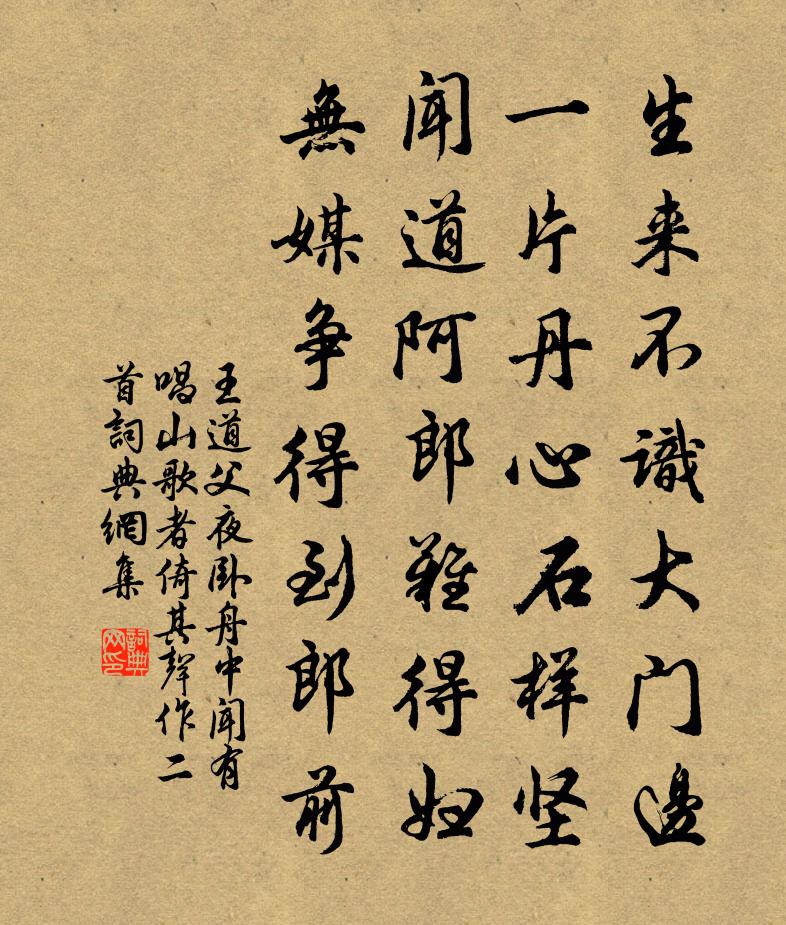 生来不識大门邊
一片丹心石样坚
闻道阿郎難得妇
無媒争得到郎前
王道父夜卧舟中闻有
唱山歌者倚其聲作二
首詞典網集
詞典
网印